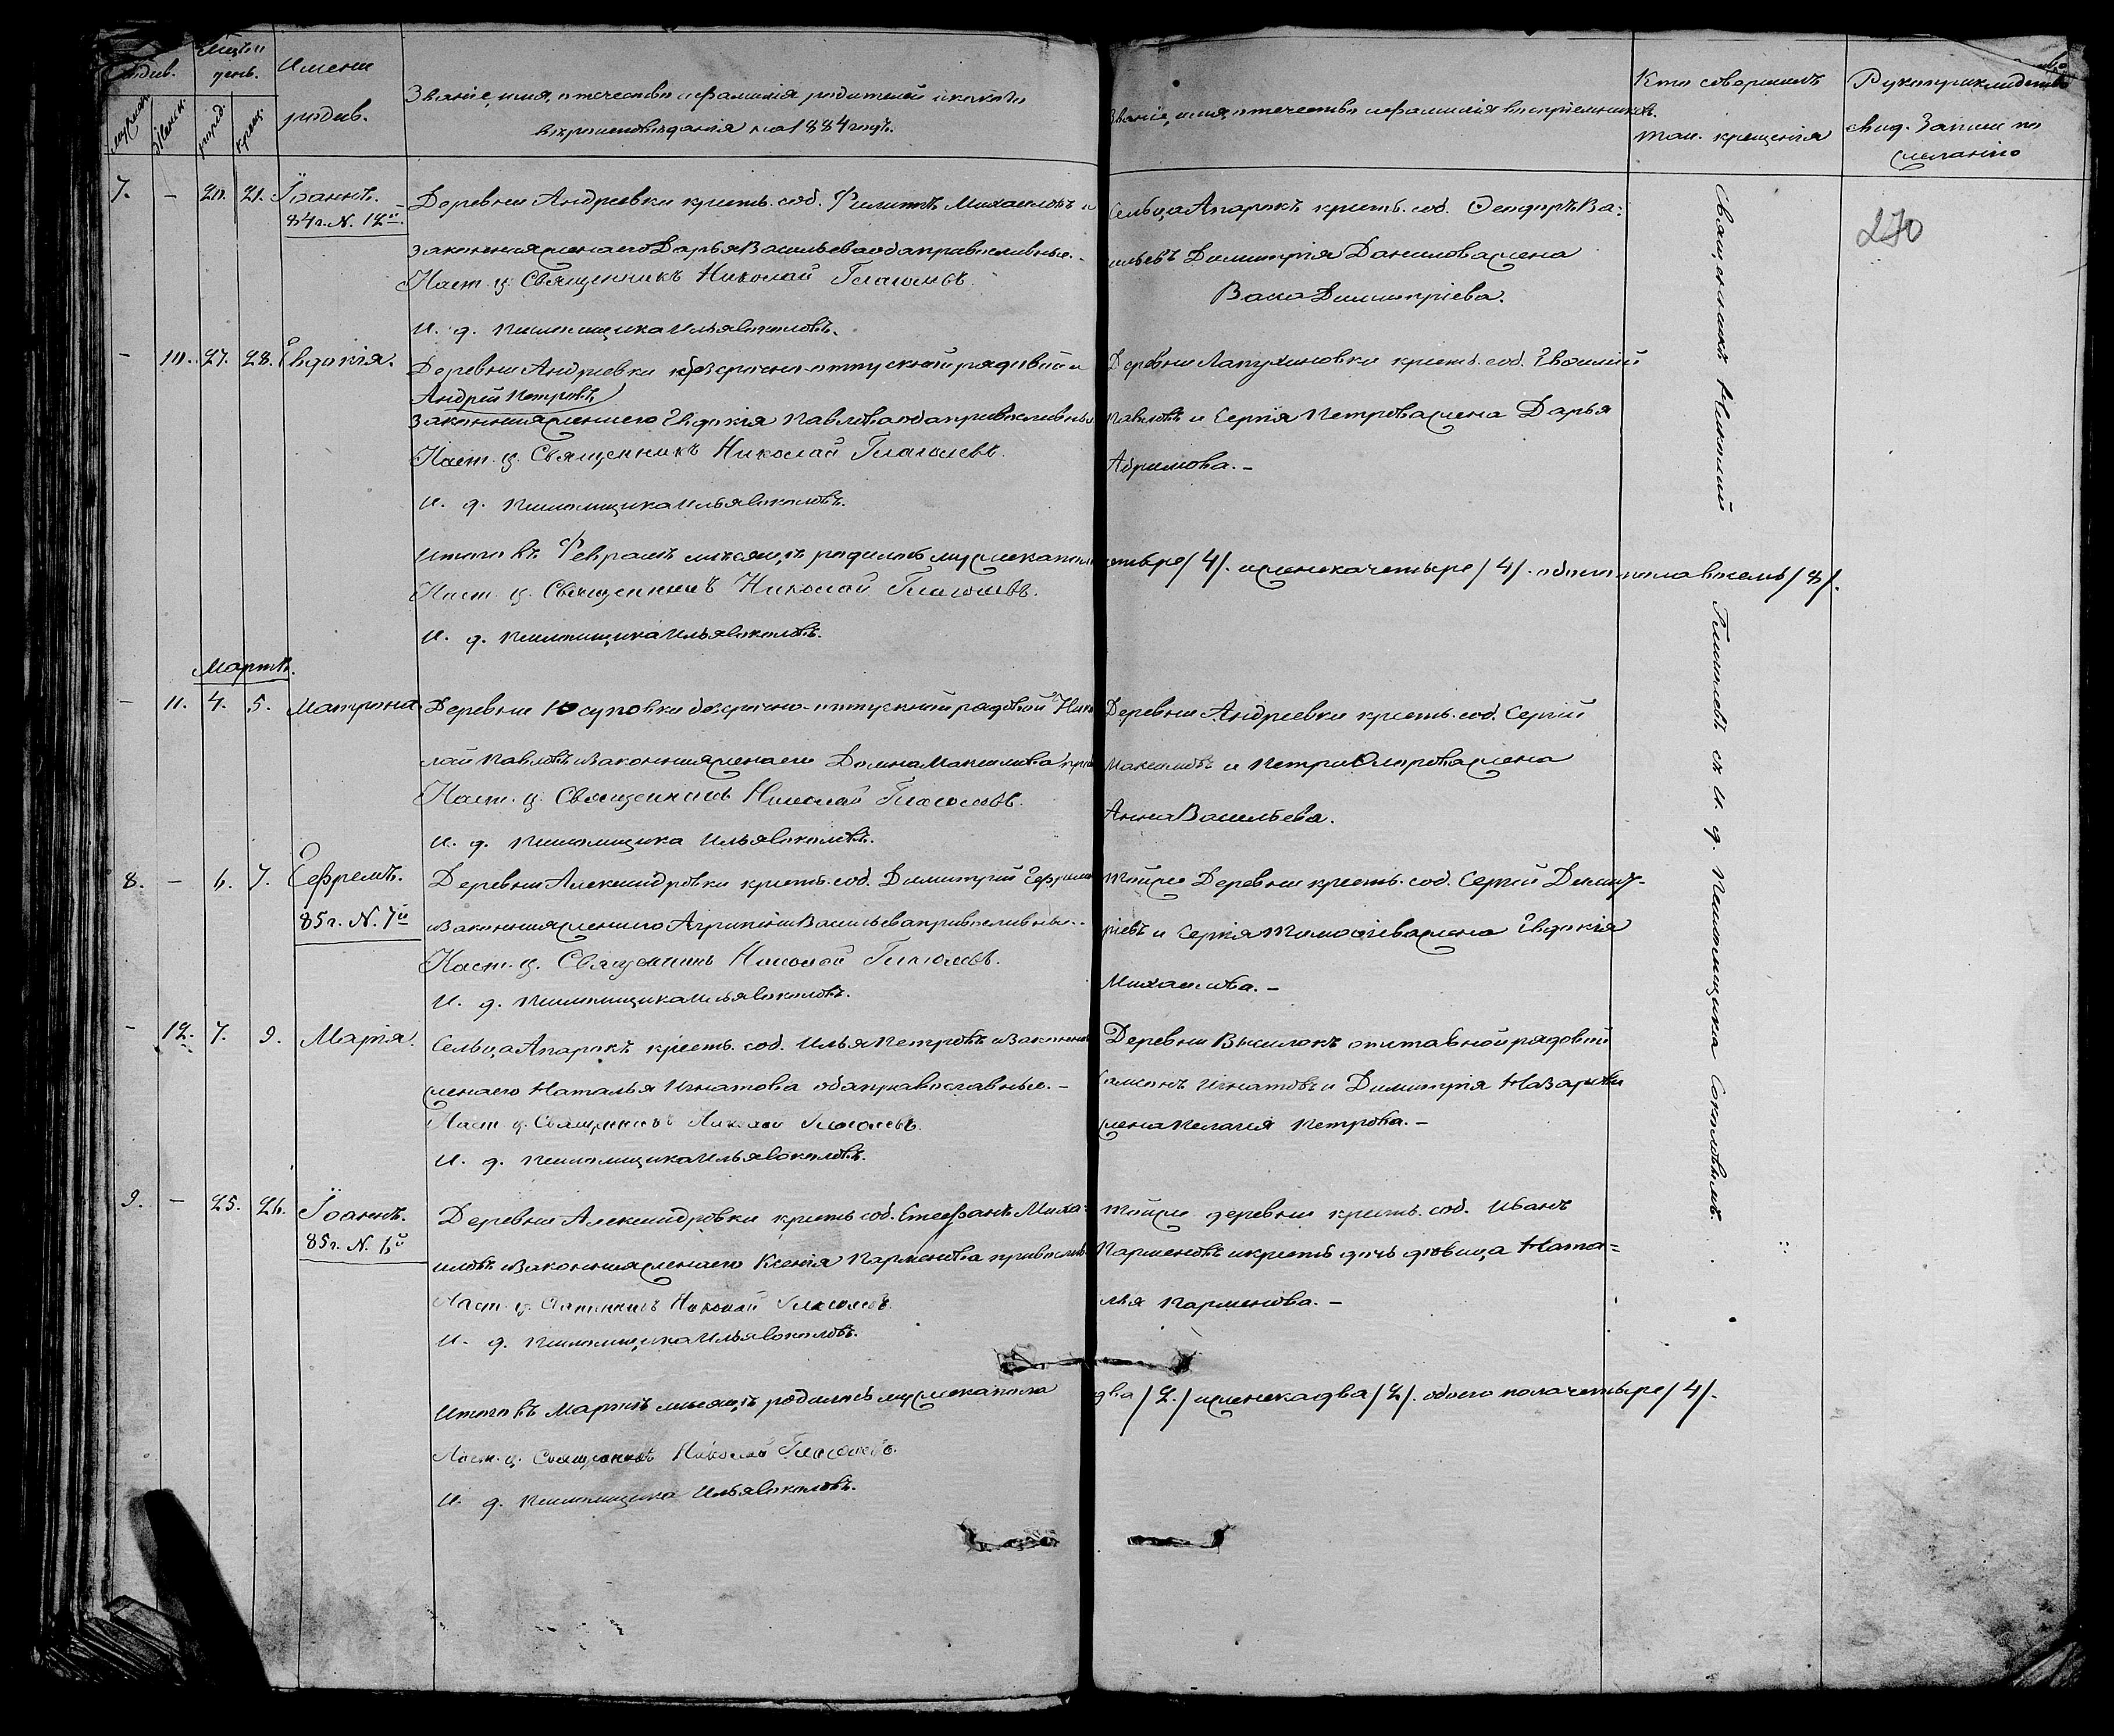 Мѣсяцъ и
день.
Имена
родив.
мужеск.
женск.
рожд.
крещ.
Званіе, имя, отчество и фамилія родителей и какого
вѣроисповѣданія на 1884 годъ.
Званіе, имя, отчество и фамилія воспріемниковъ.
Кто совершилъ
таи. крещенія
Рукоприкладство
свид. записи по
желанію
270
7. – 20. 21. Іоаннъ.
84 г. N. 12й
Деревни Андреевки крест. соб. Филиппъ Михаиловъ и
законная жена его Дарья Васильева оба православные.
Наст. ц. Священникъ Николай Глаголевъ.
И. д. псаломщика Илья Соколовъ.
Сельца Апарокъ крест. соб. Ѳеодоръ Ва-
сильевъ Димитрія Данилова жена
Васса Димитріева.
– 10. 27. 28. Евдокія.
Деревни Андреевки безсрочно-отпускной рядовой
Андрей Петровъ
законная жена его Евдокія Павлова оба православные
Наст. ц. Священникъ Николай Глаголевъ.
И. д. псаломщика Илья Соколовъ.
Деревни Лапухиновки крест. соб. Василій
Павловъ и Сергія Петрова жена Дарья
Абрамова. –
Итого въ Февралѣ мѣсяцѣ родилось мужеска пола четыре /4/. и женска четыре /4/. обоего пола восемь /8/.
Наст. ц. Священникъ Николай Глаголевъ.
И. д. псаломщика Илья Соколовъ.
Мартъ.
– 11. 4. 5. Матрона.
Деревни Юсуповки безсрочно-отпускной рядовой Нико
лай Павловъ и законная жена его Домна Максимова
Наст. ц. Священникъ Николай Глаголевъ.
И. д. псаломщика Илья Соколовъ.
Деревни Андреевки крест. соб. Сергій
Максимовъ и Петра жена
Анна Васильева.
8. – 6. 7. Ефремъ.
85 г. N. 7й
Деревни Александровки крест. соб. Димитрій Ефремо
и законная жена его Агрипина Васильева православные.
Наст. ц. Священникъ Николай Глаголевъ.
И. д. псаломщика Илья Соколовъ.
Той же Деревни крест. соб. Сергій Димит-
ріевъ и Сергія Тимоѳеева жена Евдокія
Михаилова. –
– 12. 7. 9. Марія.
Сельца Апарокъ крест. соб. Илья Петровъ и законная
жена его Наталья Игнатова оба православные. –
Наст. ц. Священникъ Николай Глаголевъ.
И. д. псаломщика Илья Соколовъ.
Деревни Выселокъ отставной рядовой
Игнатовъ и Димитрія Назарова
жена Пелагія Петрова. –
9. – 25. 26. Іоаннъ.
85 г. N. 6й
Деревни Александровки крест. соб. Стефанъ Миха-
иловъ и законная жена его Ксенія Парменова православ
Наст. ц. Священникъ Николай Глаголевъ.
И. д. псаломщика Илья Соколовъ.
Той же деревни крест. соб. Иванъ
Парменовъ и крест. дочь дѣвица Ната-
лья Парменова. –
Итого въ Мартѣ мѣсяцѣ родилось мужеска пола два /2./ и женска два /2/. обоего пола четыре /4/.
Наст. ц. Священникъ Николай Глаголевъ.
И. д. псаломщика Илья Соколовъ.
Священникъ Николай Глаголевъ съ и. д. псаломщика Соколовымъ.